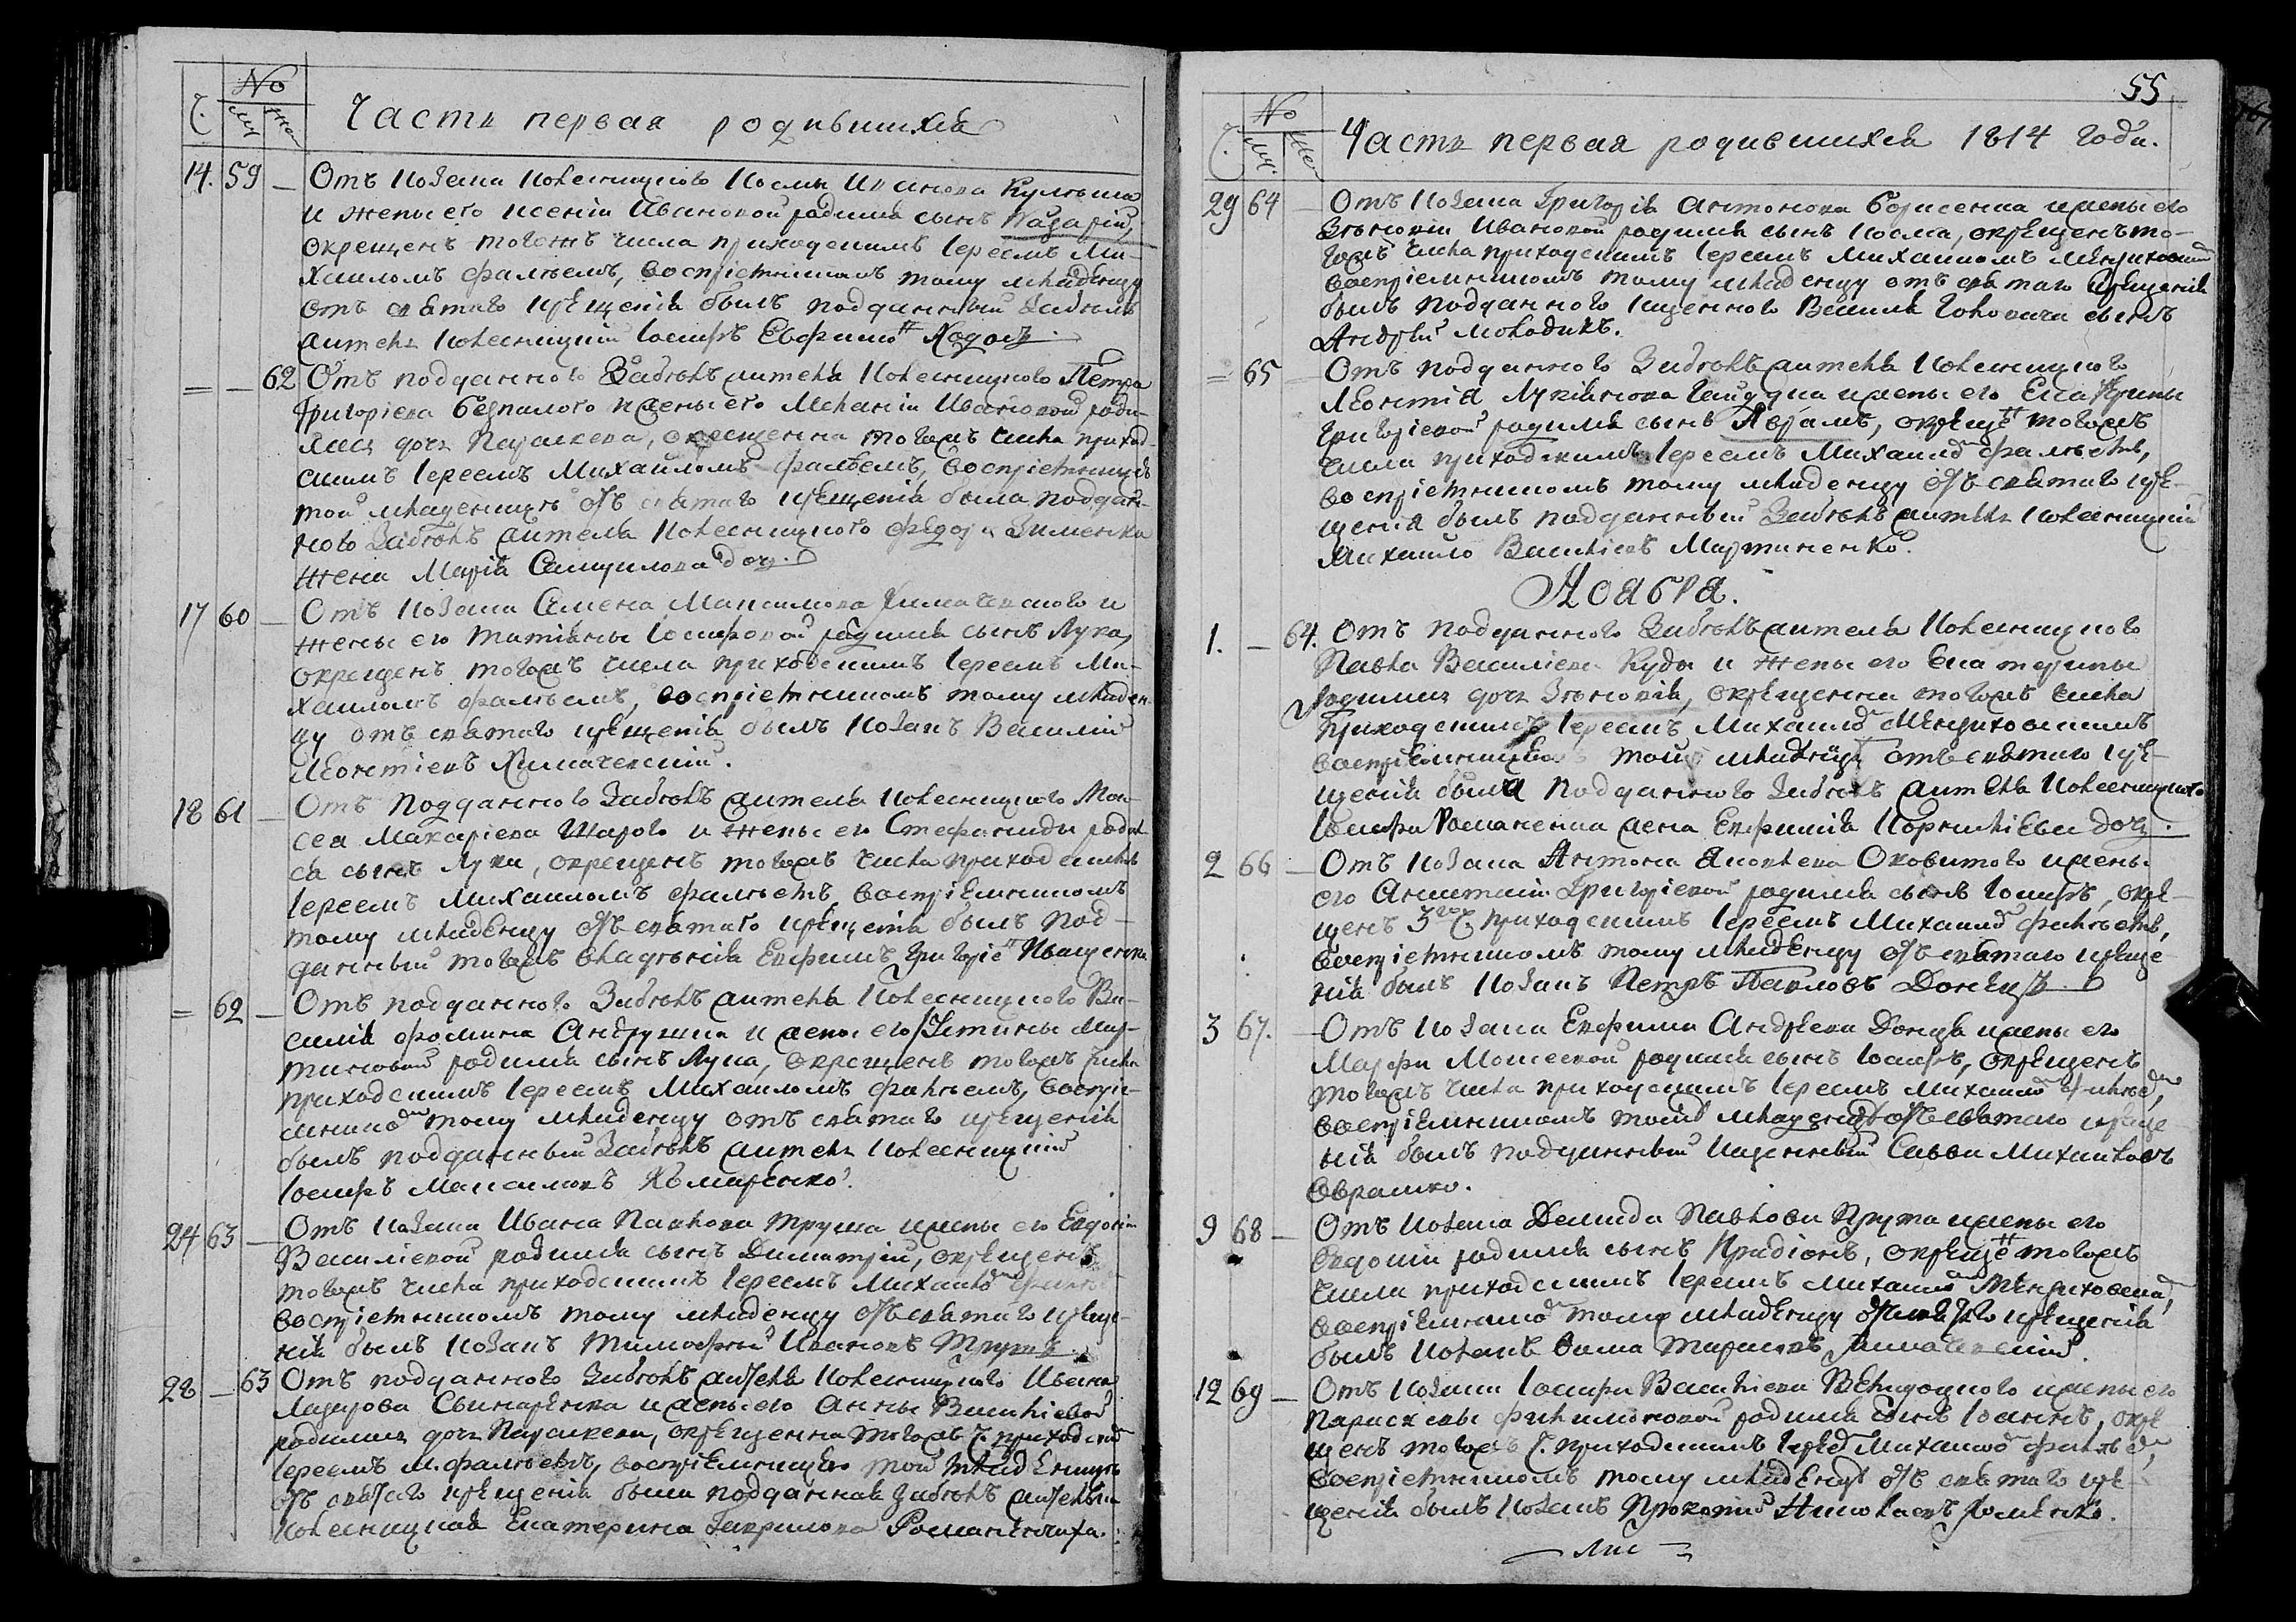 №
Ч. муж жен
Часть первая родившихся
14. 59 — Отъ козака Колесницкого Космы Иванова
и жены его Ксеніи Ивановой родился сынъ Назарій,
окрещенъ тогожъ числа приходскимъ Іереемъ Ми-
хаиломъ Фалѣемъ, воспріемникомъ тому младенцу
отъ святаго крещенія былъ подданный Забѣлъ
антель Колесницкій Іосифъ Евфимо Ходосъ.
= — 62 Отъ подданного Забѣлъ антеля Колесницкого Петра
Григоріева Безпалого и жены его Меланіи Ивановой роди-
лась дочь Параскева, окрещенна тогожъ числа приход-
скимъ Іереемъ Михаиломъ Фалѣемъ, воспріемницею
той младеницѣ отъ святаго крещенія была поддан-
ного Забѣлъ антеля Колесницкого Федора Зименка
жена Марія Самуилова доч.
17 60 — Отъ козака Семена Максимова Химачевского и
жены его Татіаны Іосифовой родился сынъ Лука,
окрещенъ тогожъ числа приходскимъ Іереемъ Ми-
хаиломъ Фалѣемъ, воспріемникомъ тому младен-
цу отъ святаго крещенія былъ козакъ Василій
Леонтіевъ Химачевскій.
18 61 — Отъ подданного Забѣлъ антеля Колесницкого Мои-
сея Макаріева Шарого и жены его Стефаниды родил
ся сынъ Лука, окрещенъ тогожъ числа приходскимъ
Іереемъ Михаиломъ Фалѣемъ, воспріемникомъ
тому младенцу отъ святаго крещенія былъ под-
данный тогожъ владѣнія Евфимъ Григоріе Иващенко
= 62 — Отъ подданного Забѣлъ антеля Колесницкого Ва-
силія Фомина Андрушка и жены его Устины Мар-
тиновой родился сынъ Лука, окрещенъ тогожъ числа
приходскимъ Іереемъ Михаиломъ Фалѣемъ, воспріе-
мнико тому младенцу отъ святаго крещенія
былъ подданный Забѣлъ антель Колесницкій
Іосифъ Максимовъ Комаренко.
24 63 — Отъ козака Ивана Павлова Труша и жены его Евдокіи
Василіевой родился сынъ Димитрій, окрещенъ
тогожъ числа приходскимъ Іереемъ Михаило
воспріемникомъ тому младенцу отъ святаго креще-
нія былъ козакъ Тимофей Ивановъ Трушъ.
28 — 63 Отъ подданного Забѣлъ антеля Колесницкого Ивана
Лазарова Свинаренка и жены его Анны Василіевой
родилась дочь Параскева, окрещенна тогожъ ч. приходски
Іереемъ М. Фалѣемъ, воспріемницею той младеницѣ
отъ святаго крещенія была подданная Забѣлъ антелыи
Колесницкая Екатерина Гаврилова Романенчиха.
55
№
Ч. муж. жен
Часть первая родившихся 1814 года.
29 64 — Отъ козака Григорія Антонова Борисенка и жены его
Зѣновіи Ивановой родился сынъ Косма, окрещенъ то-
гожъ числа приходскимъ Іереемъ Михаиломъ Мендиховским
воспріемникомъ тому младенцу отъ святаго крещенія
былъ подданного Василія сынъ
Андрей молодикъ.
= 65 Отъ подданного Забѣлъ антеля Колесницкого
Леонтія Лукіянова Гайдука и жены его Екатерины
Григоріевой родился сынъ Авраамъ, окреще тогожъ
числа приходскимъ Іереемъ Михаило Фалѣемъ,
воспріемникомъ тому младенцу отъ святаго кре-
щенія былъ подданный Забѣлъ антель Колесницкій
Михайло Василіевъ Мартиненко.
Ноября.
1. — 64. Отъ подданного Забѣлъ антеля Колесницкого
Павла Василіева Куды и жены его Екатерины
родилась дочь Зѣновія, окрещенна тогожъ числа
приходскимъ Іереемъ Михаило Мендиховскимъ
воспріемницею той младеницѣ отъ святаго кре-
щенія была подданного Забѣлъ антеля Колесницкого
Іосифа Романенка жена Евфимія Корниліева доч.
2 66 — Отъ козака Антона Яковлева Оковитого и жены
его Анастасіи Григоріевой родился сынъ Іосифъ, окре-
щенъ 3го ч. приходскимъ Іереемъ Михаило Фалѣемъ,
воспріемникомъ тому младенцу отъ святаго креще-
нія былъ козакъ Петръ Павловъ Донецъ.
3 67. — Отъ козака Евфима Андреева Донца и жены его
Марфы Моисеевой родился сынъ Іосифъ, окрещенъ
тогожъ числа приходскимъ Іереемъ Михаило
воспріемникомъ тому младенцу отъ святаго креще
нія былъ подданный Савва Михайловъ
Овраменко.
9 68 — Отъ козака Демида Павлова Прута и жены его
Евдокіи родился сынъ Иродіонъ, окреще тогожъ
числа приходскимъ Іереемъ Михаило Мендиховски,
воспріемнико тому младенцу отъ святаго крещенія
былъ козакъ Фома Тарасовъ Химачевскій.
12 69 — Отъ козака Іосифа Василіева и жены его
Параскевы Филимоновой родился сынъ Іоаннъ, окре
щенъ тогожъ ч. приходскимъ Іерее Михаило Фалѣе
воспріемникомъ тому младенцу отъ святаго кре-
щенія былъ козакъ Прокопій Николаевъ Хоменко.